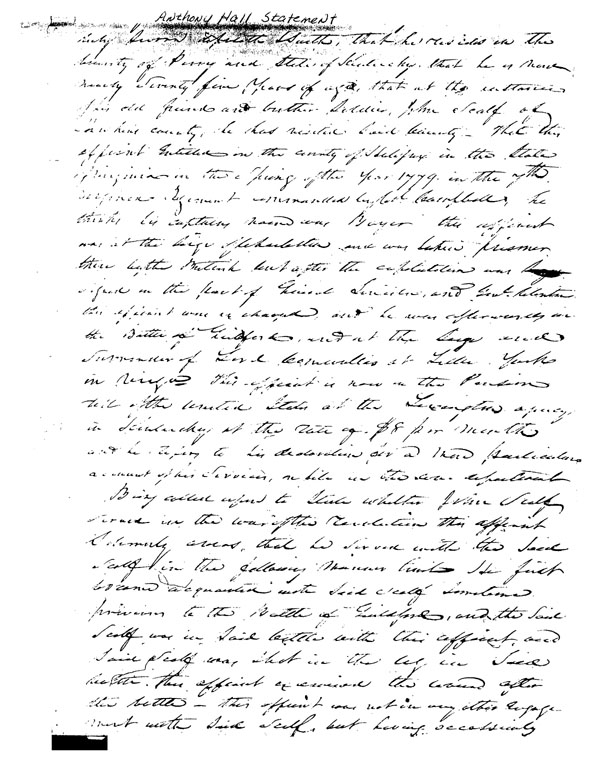 Anthony Hall Statement
duly sworn upon his oath, that he resides in the
County of Perry and State of Kentucky, that he is now
nearly Seventy five years of age, that at the instance
of his old friend and brother Soldier, John Scalf of
county, he has visited said County - That this
affiant enlisted in the county of Halifax in the State
of Virginia in the Spring of the year 1779 in the 7th
Regiment commanded by Campbell, he
thinks his captains name was this affiant
was at the Siege of Charleston and was taken prisoner
there by the British but after the capitulation was
signed on the part of General Lincoln, and
this affiant was exchanged, and he was afterwards in
the Battle of Guilford, and at the Siege and
Surrender of Lord Cornwallis at Little York
in Virga This affiant is now on the Pension
of the United States at the Lexington agency
in Kentucky at the rate of $8 per month
and he refers to his declaration for a more particular
account of his Services, on file in the War department
Being called upon to State whether John Scalf
served in the war of the revolution this affiant
Solemnly swears, that he served with the Said
Scalf in the following manner He first
became acquainted with Said Scalf sometime
previous to the Battle of Guilford, and the Said
Scalf was in Said battle with this affiant and
Said Scalf was Shot in the leg in Said
battle. this affiant examined the wound after
the battle - this affiant was not in any other engage-
ment with Said Scalf, but having